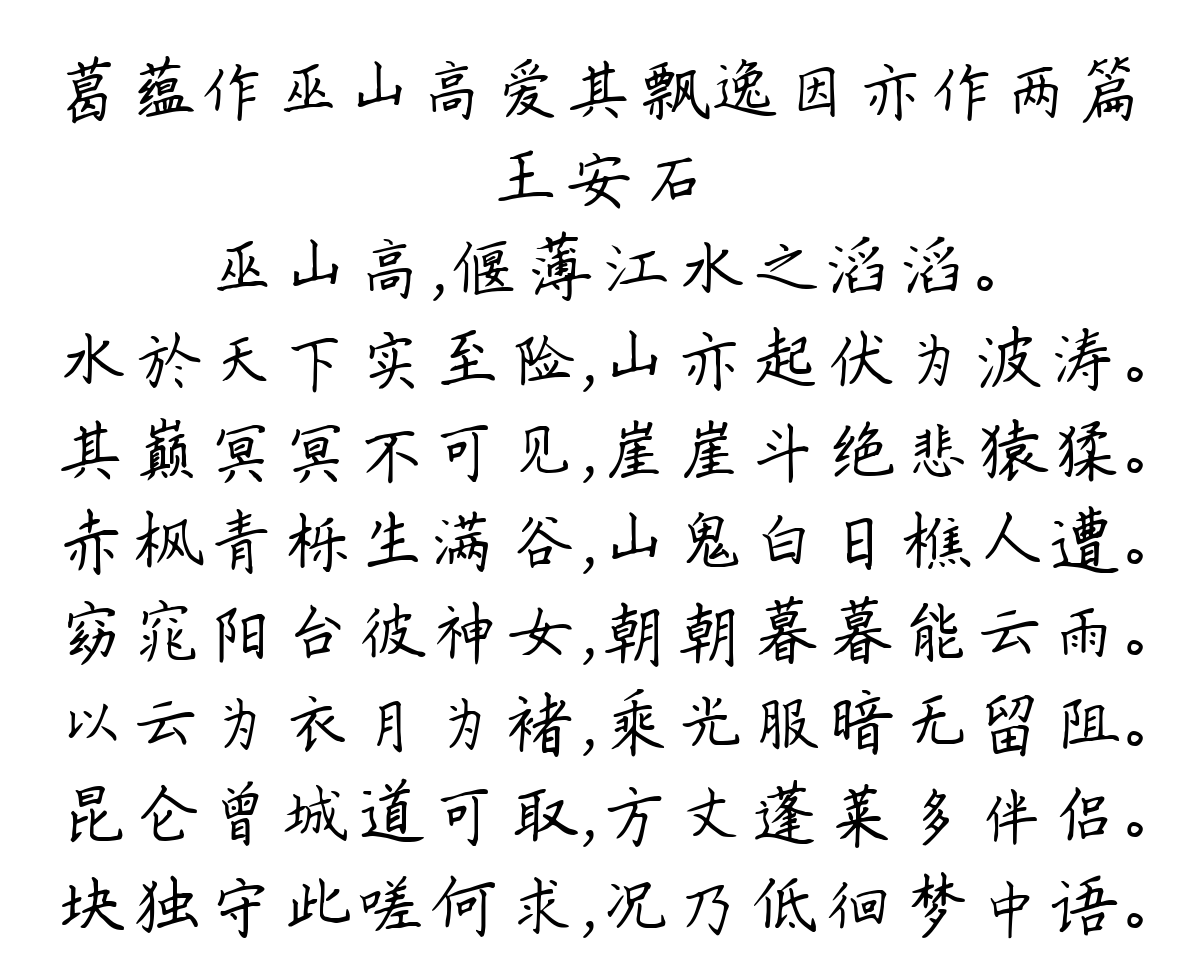 葛蕴作巫山高爱其飘逸因亦作两篇
王安石
巫山高,偃薄江水之滔滔。
水於天下实至险,山亦起伏为波涛。
其巅冥冥不可见,崖崖斗绝悲猿猱。
赤枫青栎生满谷,山鬼白日樵人遭。
窈窕阳台彼神女,朝朝暮暮能云雨。
以云为衣月为褚,乘光服暗无留阻。
昆仑曾城道可取,方丈蓬莱多伴侣。
块独守此嗟何求,况乃低徊梦中语。